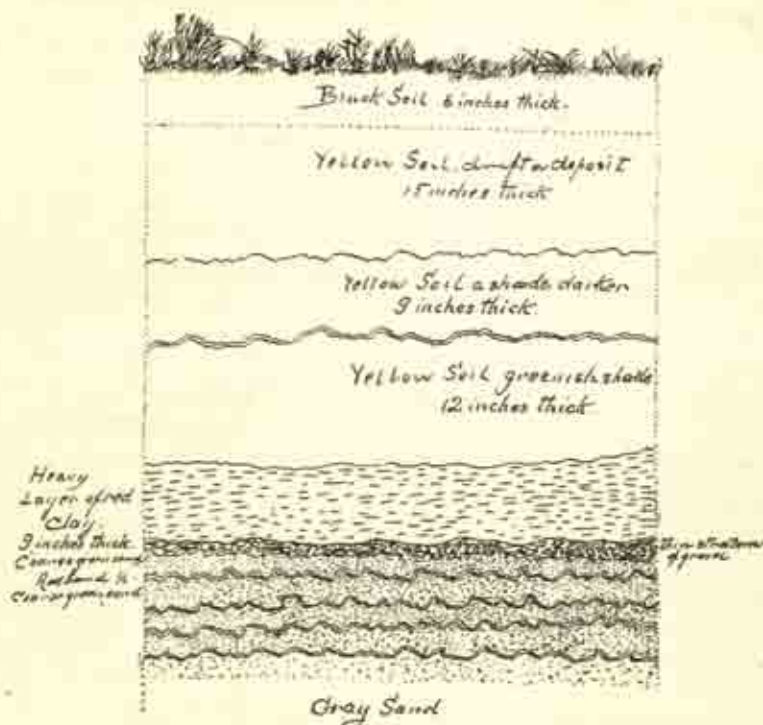 Black Soil 6 inches thick.
Yellow Soil, drift or deposit
15 inches thick
Yellow Soil a shade darker
9 inches thick.
Yellow Soil greenish shade
12 inches thick
Heavy
Layer of red
Clay
9 inches thick.
Coarse gray sand
Red sand
Coarse gray sand
Thin stratum
of gravel
Gray Sand